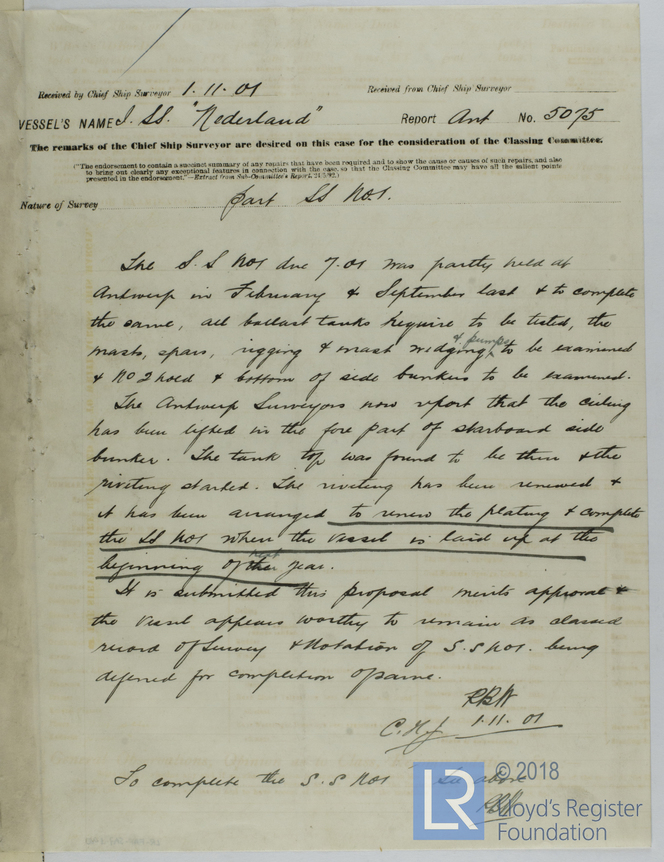 Received by Chief Ship Surveyor 1.11.01 Received from Chief Ship Surveyor
VESSEL'S NAME I. SS. "Nederland" Report Ant No. 5075
The remarks of the Chief Ship Surveyor are desired on this case for the consideration of the Classing Committee.
("The endorsement to contain a succinct summary of any repairs that have been required and to show the cause or causes of such repairs, and also
to bring out clearly any exceptional features in connection with the case, so that the Classing Committee may have all the salient points
presented in the endorsement."—Extract from Sub-Committee's Report,
Nature of Survey part SS No.1.
The S.S No1 due 7.01 was partly held at
Antwerp in February & September last & to complete
the same, all ballast tanks require to be tested, the
masts, spars, rigging & mast wedging & pumps to be examined
& No 2 hold & bottom of side bunkers to be examined.
The Antwerp Surveyors now report that the ceiling
has been lifted in the fore part of starboard side
bunker. The tank top was found to be thin & the
riveting started. The riveting has been renewed &
it has been arranged to renew the plating & complete
the SS No1 when the vessel is laid up at the
beginning of next year.
It is submitted this proposal merits approval &
the vessel appears worthy to remain as classed
record of Survey & Notation of S.S No1. being
deferred for completion of same.
RBW
1.11.01
To complete the S.S No1 See above
© 2018
Lloyd's Register
Foundation
LR